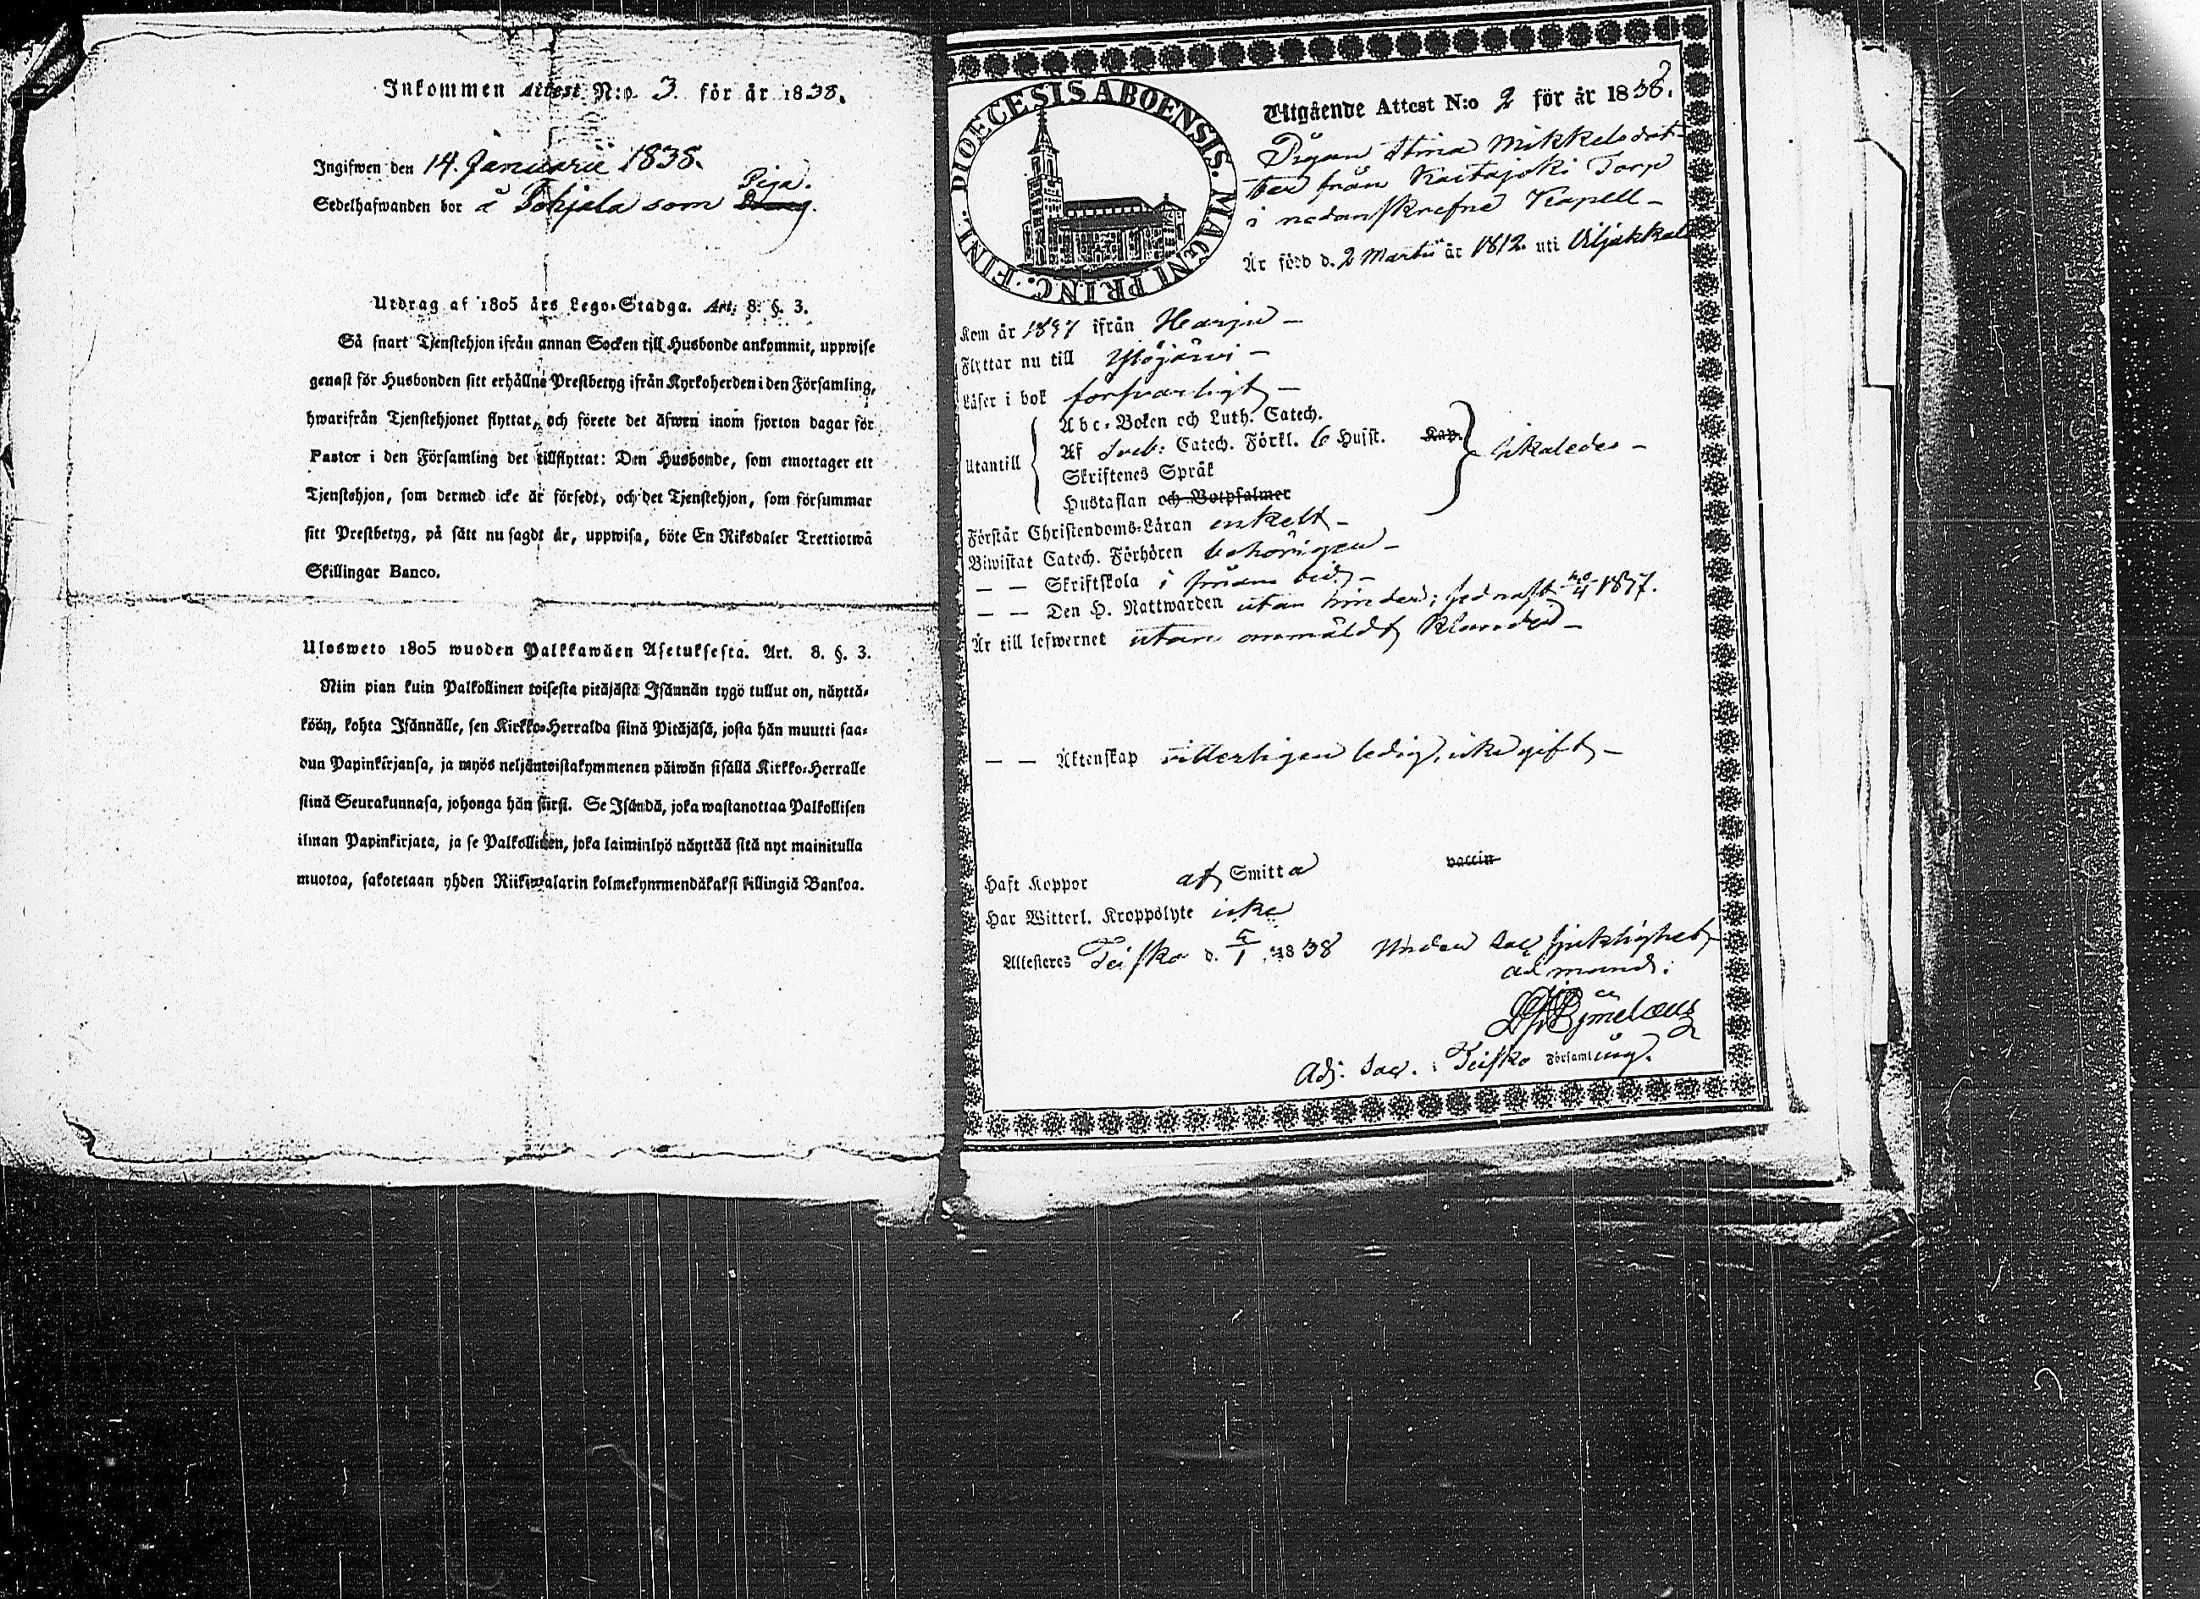 Inkommen Attest N:o 3 för år 1838.
Ingifwen den 14. Januarii 1838.
Piga.
Sedelhafwanden bor å Pohjala som Dräng.
Utdrag af 1805 års Lego-Stadga. Art. 8. §. 3.
Så snart Tjenstehjon ifrån annan Socken till Husbonde ankommit, uppwise
genast för Husbonden sitt erhållne Prestbetyg ifrån Kyrkoherden i den Församling,
hwarifrån Tjenstehjonet flyttat, och förete det äfwen inom fjorton dagar för
Pastor i den Församling det tillflyttat: Den Husbonde, som emottager ett
Tjenstehjon, som dermed icke är försedt, och det Tjenstehjon, som försummar
sitt Prestbetyg, på sätt nu sagdt är, uppwisa, böte En Riksdaler Trettiotwå
Skillingar Banco.
Ulosweto 1805 wuoden Palkkawäen Asetuksesta. Art. 8. §. 3.
Niin pian kuin Palkollinen toisesta pitäjästä Isännän tygö tullut on, näyttä-
köön, kohta Isännälle, sen Kirkko-Herralda siinä Pitäjäsä, josta hän muutti saa-
dun Papinkirjansa, ja myös neljäntoistakymmenen päiwän sisällä Kirkko-Herralle
siinä Seurakunnasa, johonga hän siirsi. Se Isändä, joka wastanottaa Palkollisen
ilman Papinkirjata, ja se Palkollinen, joka laiminlyö näyttää sitä nyt mainitulla
muotoa, sakotetaan yhden Riikintalarin kolmekymmendäkaksi killingiä Bankoa.
DIOECESIS ABOENSIS. MAGNI PRINC. FINL.
Utgående Attest N:o 2 för år 1838.
Pigan Stina Mikkelsdot-
ter från Kaitajoki Torp
i nedanskrefne Kapell –
Är född d. 2 Martii år 1812 uti Viljakkala
Kom år 1837 ifrån Harju –
Flyttar nu till Ylöjärvi –
Läser i bok försvarligt –
Utantill
Abc-Boken och Luth. Catech.
Af Sveb: Catech. Förkl. 6 Husst. Kap.
Skriftenes Språk
Hustaflan och Botpsalmer
likaledes –
Förstår Christendoms-Läran enkelt –
Biwistat Catech. Förhören behörigen –
– – Skriftskola i
– – Den H. Nattwarden utan hinder; sednast 1837.
Är till lefwernet utan anmäldt klander –
– – Äktenskap witterligen ledig, icke gift –
Haft Koppor af Smitta vaccin
Har Witterl. Kroppslyte icke
Attesteras Teisko d. 5/1 1838 Under Sac. sjuklighet
ad mand:
Adj. Sac. i Teisko Församling.